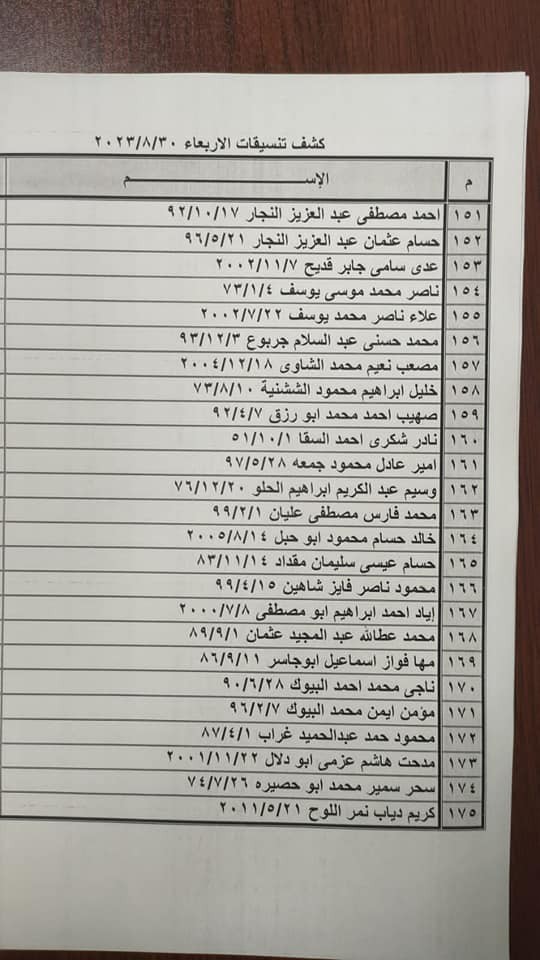 كشف تنسيقات الاربعاء ٢٠٢٣/٨/٣٠
م الإســـــــــــــــــــم
١٥١ احمد مصطفى عبد العزيز النجار ٩٢/١٠/١٧
١٥٢ حسام عثمان عبد العزيز النجار ٩٦/٥/٢١
١٥٣ عدى سامى جابر قديح ٢٠٠٢/١١/٧
١٥٤ ناصر محمد موسى يوسف ٧٣/١/٤
١٥٥ علاء ناصر محمد يوسف ٢٠٠٢/٧/٢٢
١٥٦ محمد حسنى عبد السلام جربوع ٩٣/١٢/٣
١٥٧ مصعب نعيم محمد الشاوى ٢٠٠٤/١٢/١٨
١٥٨ خليل ابراهيم محمود الششنية ٧٣/٨/١٠
١٥٩ صهيب احمد محمد ابو رزق ٩٢/٤/٧
١٦٠ نادر شكرى احمد السقا ٥١/١٠/١
١٦١ امير عادل محمود جمعه ٩٧/٥/٢٨
١٦٢ وسيم عبد الكريم ابراهيم الحلو ٧٦/١٢/٢٠
١٦٣ محمد فارس مصطفى عليان ٩٩/٢/١
١٦٤ خالد حسام محمود ابو حبل ٢٠٠٥/٨/١٤
١٦٥ حسام عيسى سليمان مقداد ٨٣/١١/١٤
١٦٦ محمود ناصر فايز شاهين ٩٩/٤/١٥
١٦٧ إياد احمد ابراهيم ابو مصطفى ٢٠٠٠/٧/٨
١٦٨ محمد عطالله عبد المجيد عثمان ٨٩/٩/١
١٦٩ مها فواز اسماعيل ابوجاسر ٨٦/٩/١١
١٧٠ ناجى محمد احمد البيوك ٩٠/٦/٢٨
١٧١ مؤمن ايمن محمد البيوك ٩٦/٢/٧
١٧٢ محمود حمد عبدالحميد غراب ٨٧/٤/١
١٧٣ مدحت هاشم عزمى ابو دلال ٢٠٠١/١١/٢٢
١٧٤ سحر سمير محمد ابو حصيره ٧٤/٧/٢٦
١٧٥ كريم دياب نمر اللوح ٢٠١١/٥/٢١